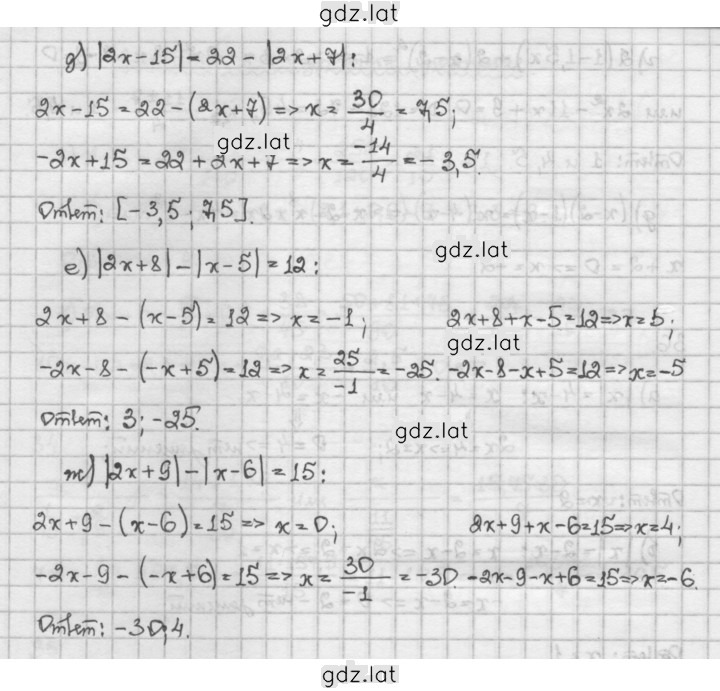 gdz.lat
д) |2x-15| = 22 - |2x+7|:
2x-15 = 22-(2x+7) => x = 30/4 = 7,5;
gdz.lat
-2x+15 = 22+2x+7 => x = -14/4 = -3,5.
Ответ: [-3,5; 7,5].
gdz.lat
е) |2x+8| - |x-5| = 12:
2x+8 - (x-5) = 12 => x = -1; 2x+8+x-5=12=>x=5;
gdz.lat
-2x-8 - (-x+5) = 12 => x = 25/-1 = -25. -2x-8-x+5=12=>x=-5
Ответ: 3; -25.
gdz.lat
ж) |2x+9| - |x-6| = 15:
2x+9 - (x-6) = 15 => x = 0; 2x+9+x-6=15=>x=4;
-2x-9 - (-x+6) = 15 => x = 30/-1 = -30. -2x-9-x+6=15=>x=-6.
Ответ: -30; 4.
gdz.lat